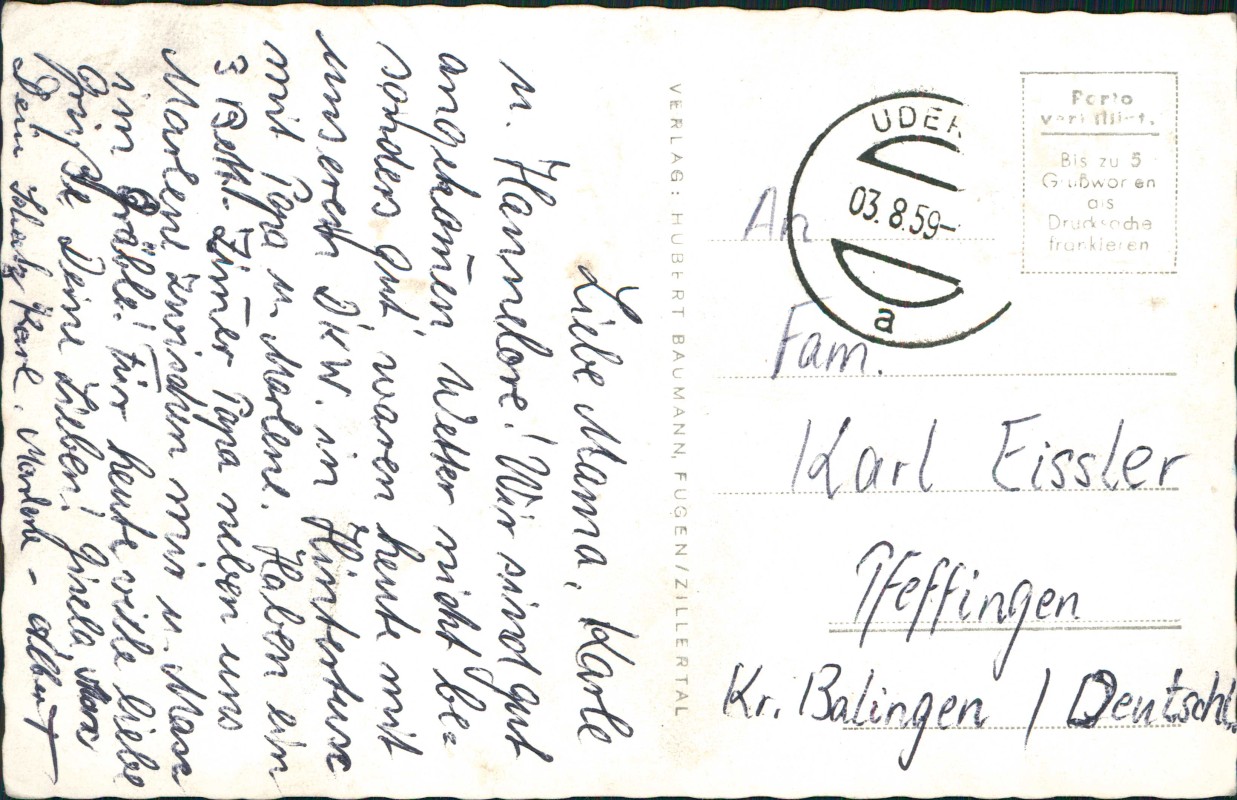 Liebe Mama, Karle
u. Hannelore! Wir sind gut
angekom̄en, Wetter nicht be=
sonders gut, waren heute mit
unserem DKW. in Hintertux
mit Papa u. Marlene. Haben ein
3 Bett-Zim̄er Papa neben uns
Marlene zwischen mir u. Max
im Gräble! Für heute viele liebe
Grüße Deine Lieben! Gisela, Max
Dein Schatz Karl. Marlene - Albert
VERLAG: HUBERT BAUMANN, FÜGEN/ZILLERTAL
UDER
03.8.59-
a
Porto
Bis zu 5
Grußworten
als
Drucksache
frankieren
An
Fam.
Karl Eissler
Pfeffingen
Kr. Balingen / Deutschl.